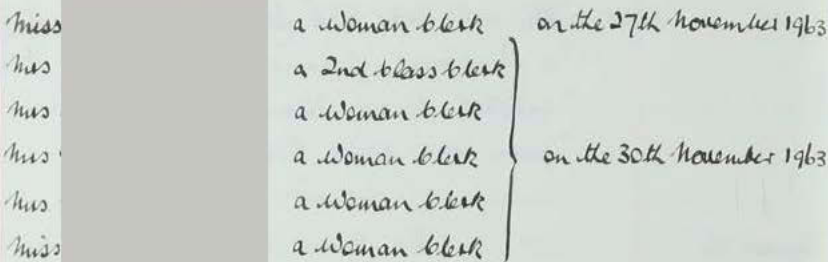 Miss a Woman Clerk on the 27th November 1963
Mrs a 2nd Class Clerk
Mrs a Woman Clerk
Mrs a Woman Clerk on the 30th November 1963
Mrs a Woman Clerk
Miss a Woman Clerk